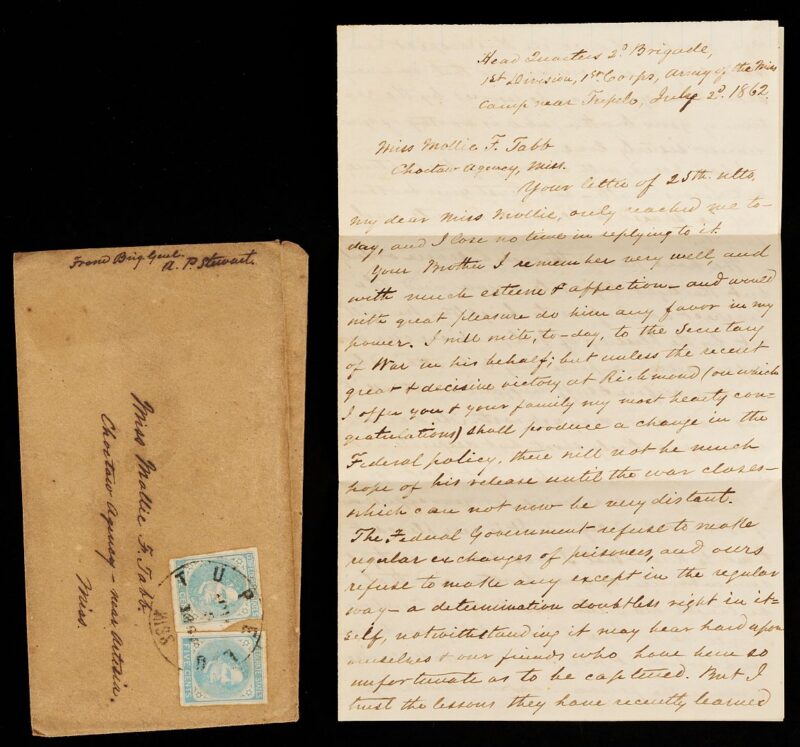 From Brig Genl
A. P. Stewart.
Miss Mollie F. Tabb.
Choctaw Agency - near Artesia.
Miss.
TUPELO
MISS
FIVE CENTS
Head Quarters 2d. Brigade,
1st Division, 1st Corps, Army of the Miss
Camp near Tupelo, July 2d. 1862.
Miss Mollie F. Tabb
Choctaw Agency, Miss.
Your letter of 25th ulto,
my dear Miss Mollie, only reached me to-
day, and I lose no time in replying to it.
Your Brother I remember very well, and
with much esteem & affection - and would
with great pleasure do him any favor in my
power. I will write, to-day, to the Secretary
of War in his behalf; but unless the recent
great & decisive victory at Richmond (on which
I offer you & your family my most hearty con-
gratulations) shall produce a change in the
Federal policy, there will not be much
hope of his release until the war closes -
which can not now be very distant.
The Federal Government refuse to make
regular exchanges of prisoners, and ours
refuse to make any except in the regular
way - a determination doubtless right in it-
self, notwithstanding it may bear hard upon
ourselves & our friends who have been so
unfortunate as to be captured. But I
trust the lessons they have recently learned